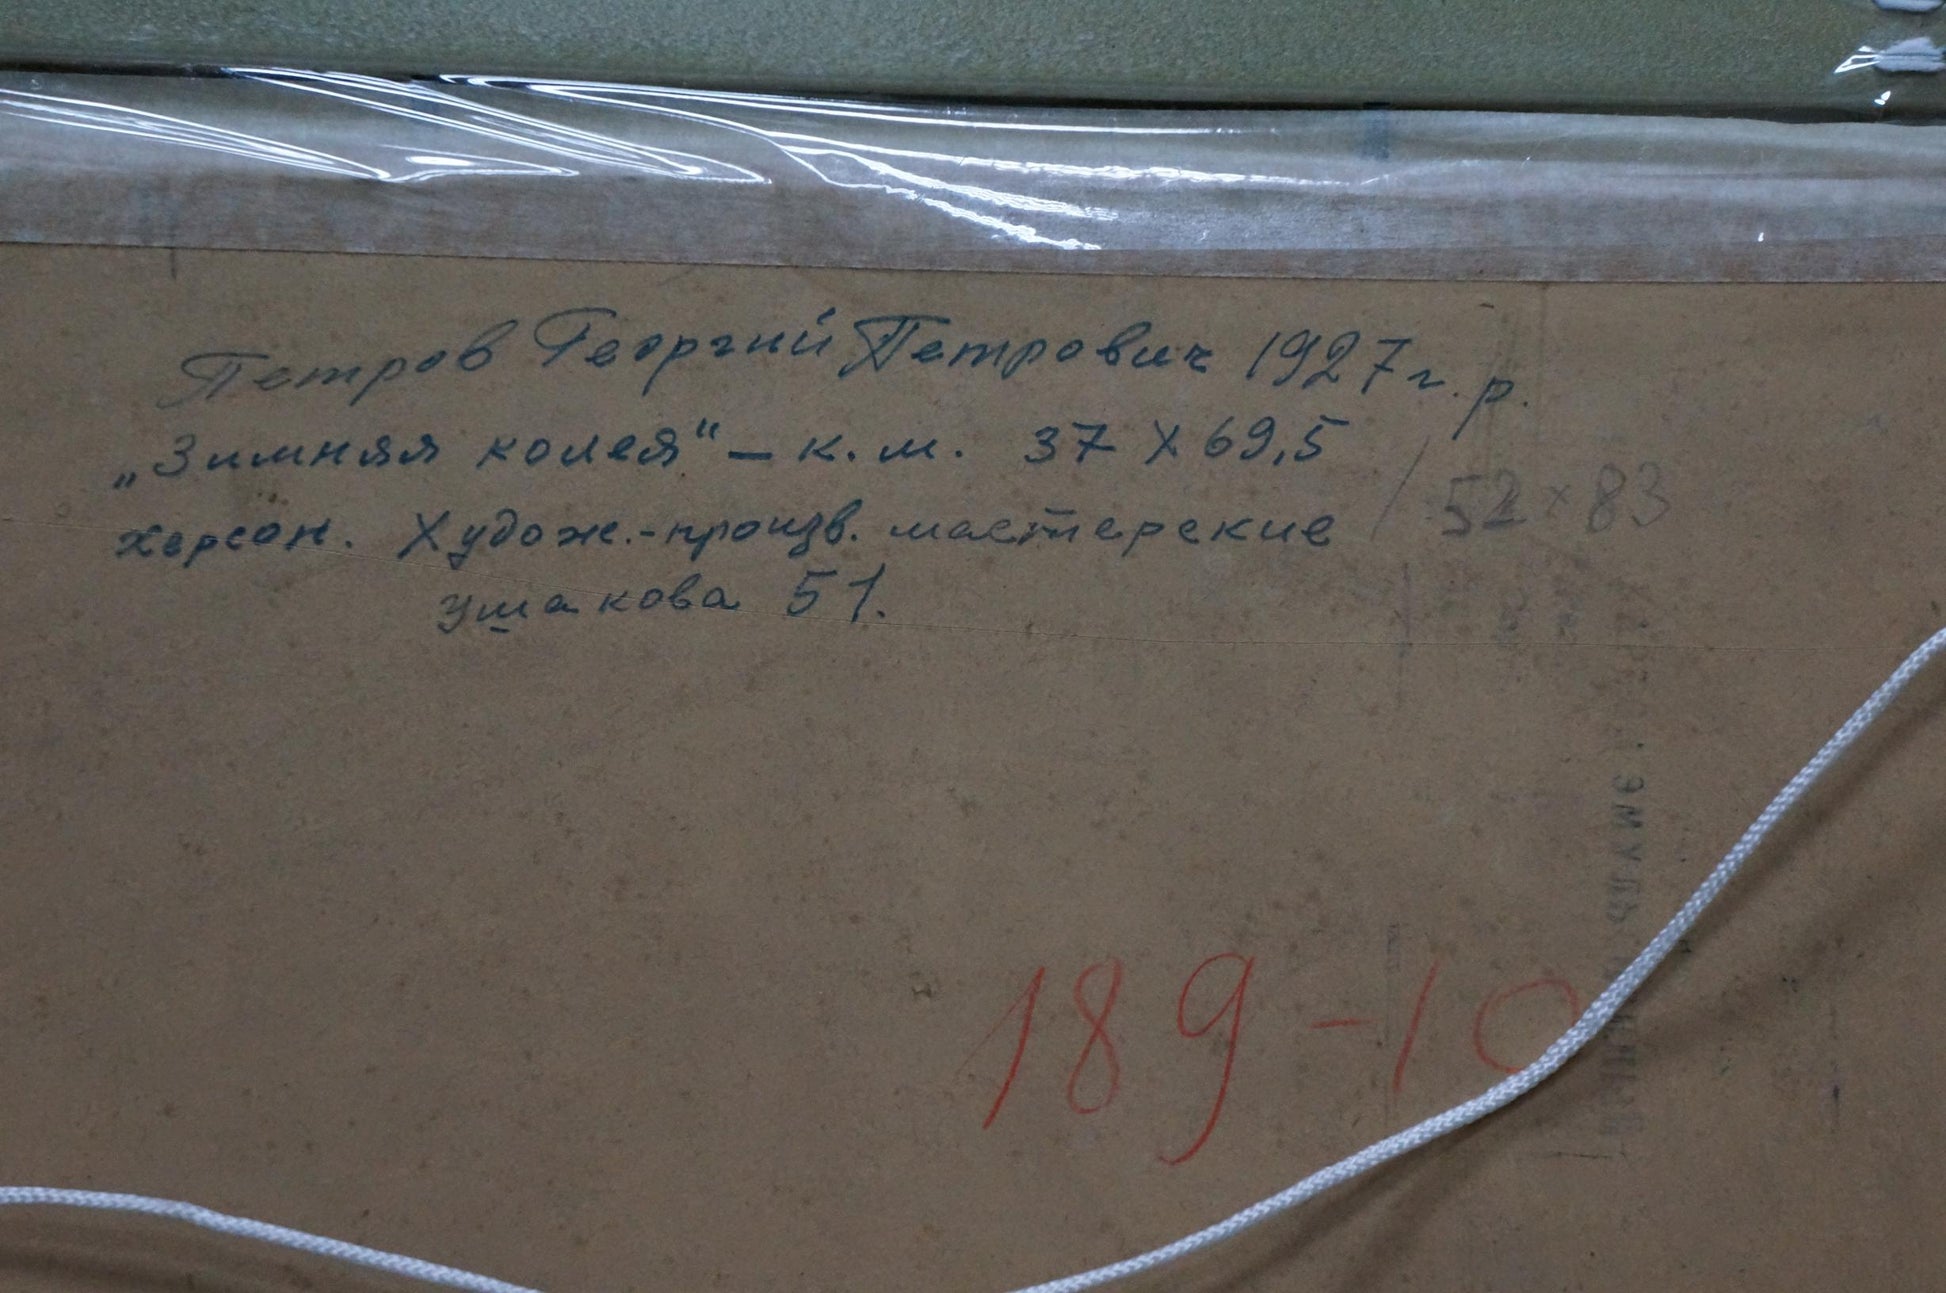 Петров Георгий Петрович 1927 г. р.
„Зимняя колея“ – к. м. 37 X 69,5
52 x 83
Херсон. Худож.-произв. мастерские
Ушакова 51.
189-10